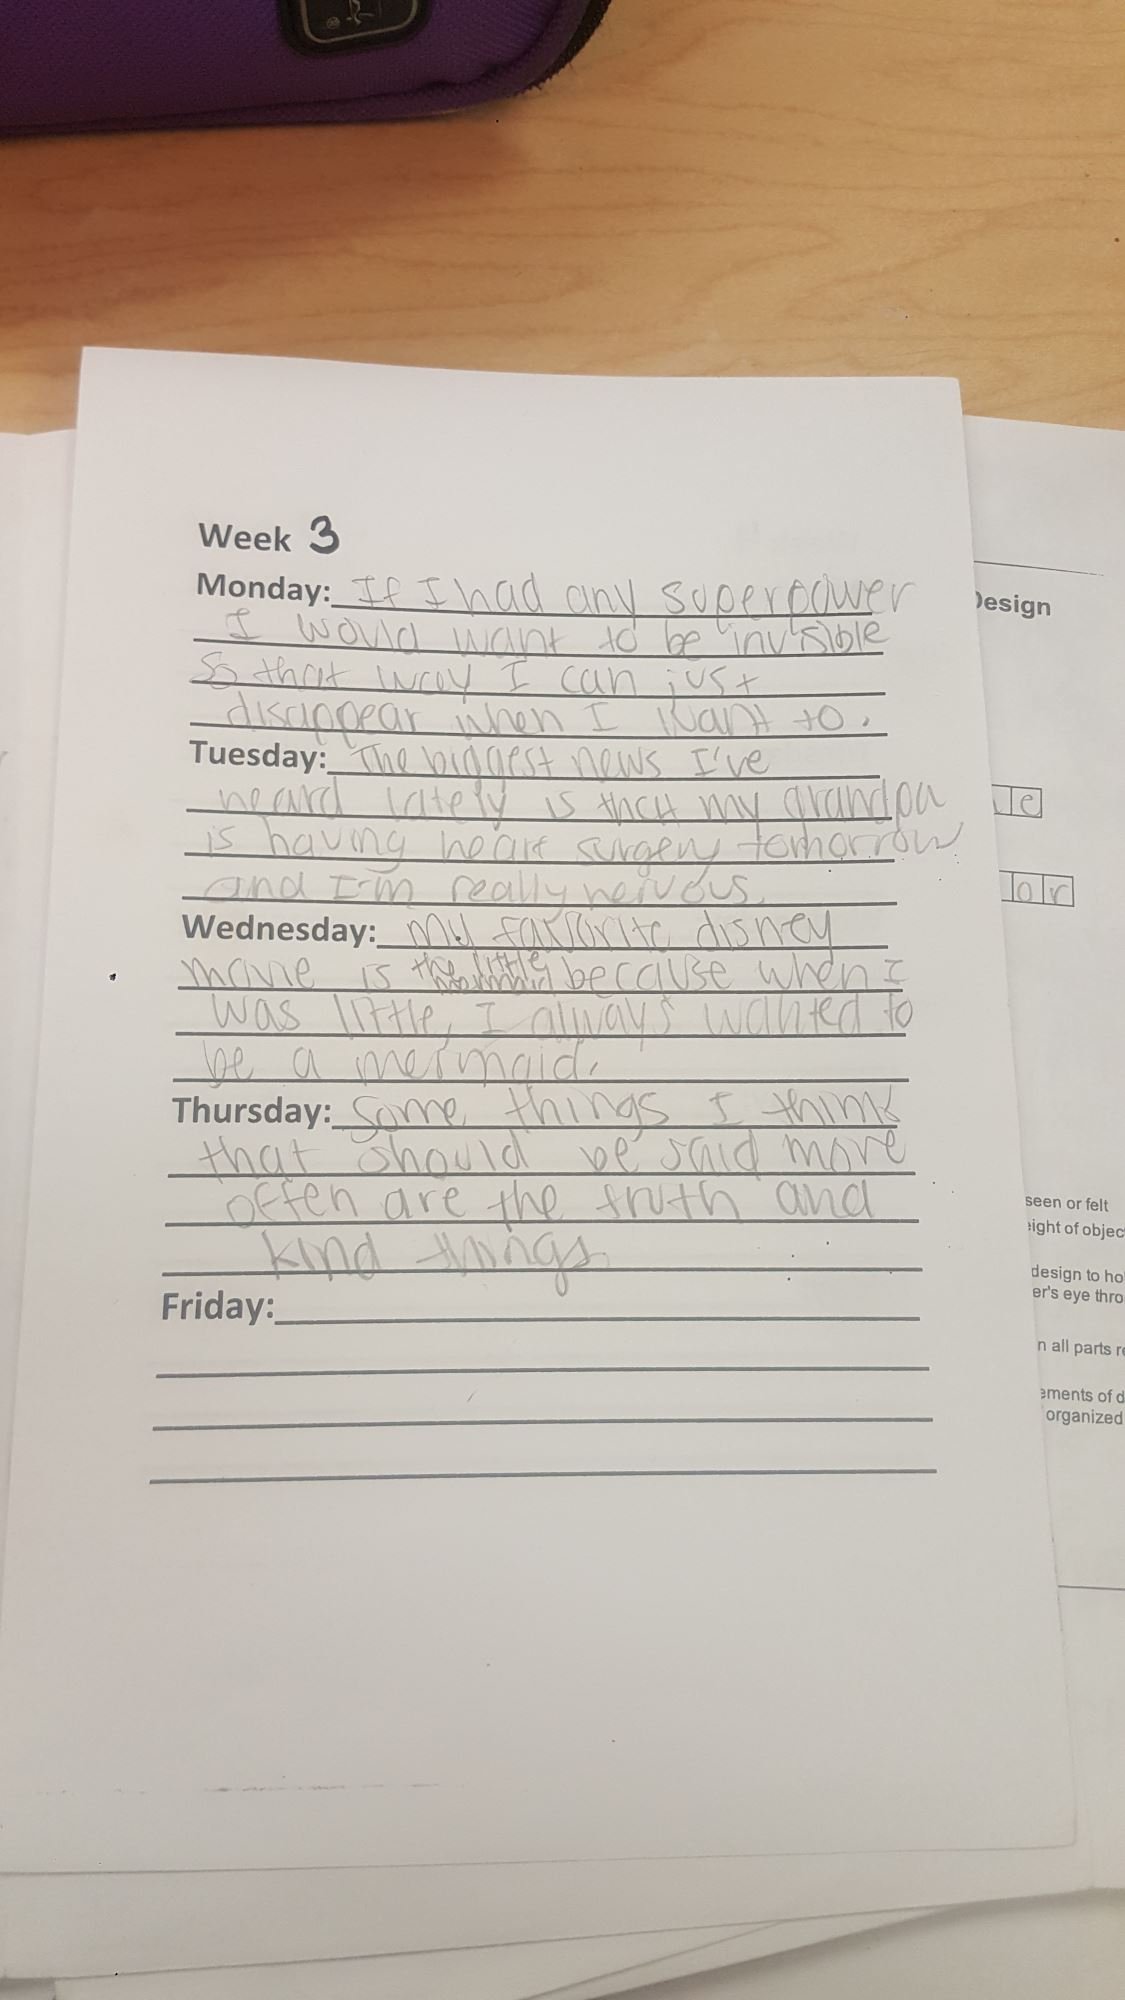 Week 3
Monday: If I had any superpower
I would want to be invisible
So that way I can just
disappear when I want to.
Tuesday: The biggest news I've
heard lately is that my grandpa
is having heart surgery tomorrow
and I'm really nervous.
Wednesday: My favorite disney
movie is the little mermaid because when I
was little, I always wanted to
be a mermaid.
Thursday: Some things I think
that should be said more
often are the truth and
kind things.
Friday:
Design
e
or
seen or felt
eight of objec
design to ho
er's eye thro
n all parts r
ements of d
organized